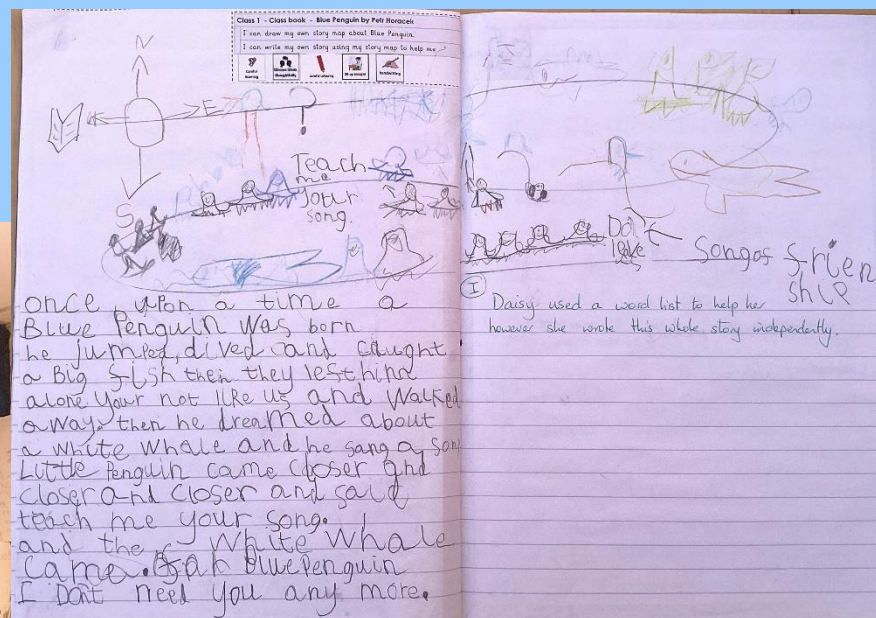 Class 1 - Class book - Blue Penguin by Petr Horacek
I can draw my own story map about Blue Penguin.
I can write my own story using my story map to help me
N
E
S
Teach
me
your
song.
Don't
leave
Song of frien
ship
once upon a time a
Blue Penguin was born
he jumped, dived and caught
a Big fish then they left him
alone your not like us and walked
away. then he dreamed about
a white whale and he sang a song
Little Penguin came closer and
closer and closer and said
teach me your song.
and the white whale
came. Blue Penguin
I Don't need you any more.
I
Daisy used a word list to help her
however she wrote this whole story independently.